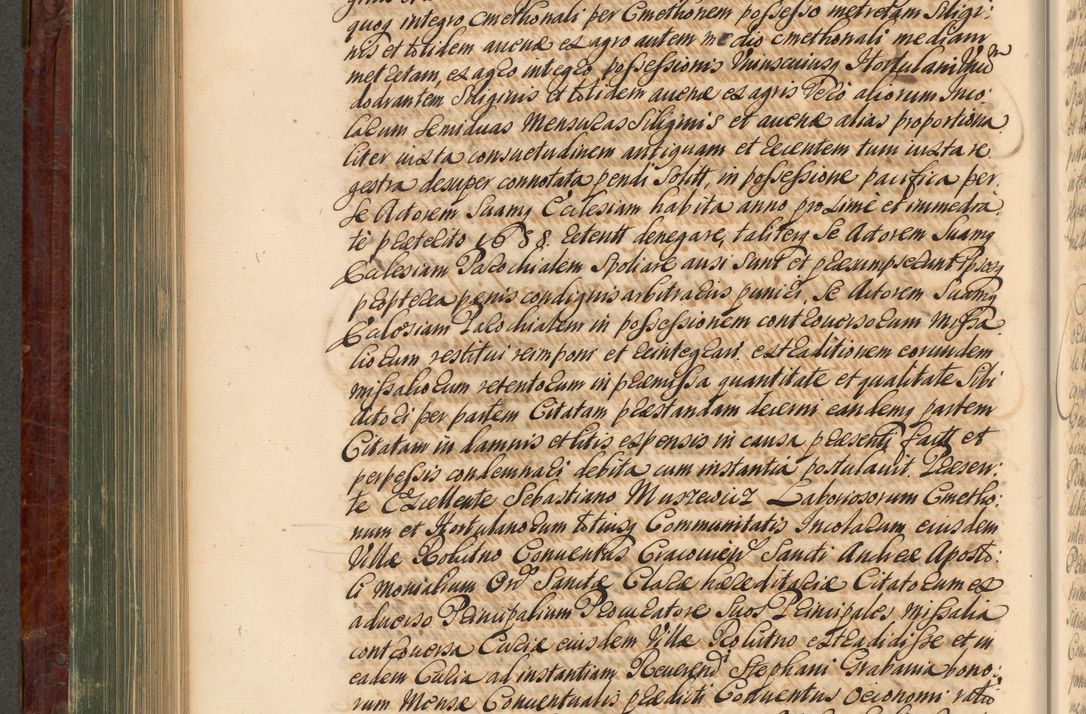 quoq integro Cmethonali per Cmethonem possesso metretam Siligi:
nis et totidem auenæ ex agro autem medio cmethonali mediam
metretam, ex agro integro possessionis Vniuscuiusq Hortulani Huiusm
dodrantem Siliginis et totidem auenæ ex agris vero aliorum Inco:
larum Semiduas Mensuras Siliginis et auenæ alias proportiona
liter iuxta consuetudinem antiquam et recentem tum iuxta re
gestra desuper connotata pendi Solitt, in possessione pacifica per
Se Actorem Suamq Ecclesiam habita anno proximè et immedia
tè præterito 1688. retentt denegare, taliterq Se Actorem Suamq
Ecclesiam Parochialem Spoliare ausi sunt et præsumpserunt Ipsosq
propterea pœnis condignis arbitrariis puniri, Se Actorem Suamq
Ecclesiam Parochialem in possessionem controuersorum Missa
liorum restitui reimponi et reintegrari extraditionem eorundem
missaliorum retentorum in præmissa quantitate et qualitate Sibi
Actori per partem Citatam præstandam decerni eandemq partem
Citatam in damnis et litis expensis in causa præsenti factt et
perpessis condemnari debita cum instantia postulauit. Præsen:
te Excellente Sebastiano Muszewicz Laboriosorum Cmetho:
num et Hortulanorum totiusq Communitatis Incolarum eiusdem
Villæ Rolutno Conuentus Cracouien Sancti Andreæ Aposto:
li Monialium Ord Sanctæ Claræ hæreditariæ Citatorum ex
aduerso Principalium Procuratore Suos Principales missalia
controuersa Curiæ eiusdem Villæ Rolutno extradidisse et in
eadem Curia ad instantiam Reuerend Stephani Grabania bono:
rum Mensæ Conuentualis prædicti Conuentus Oeconomi ratio